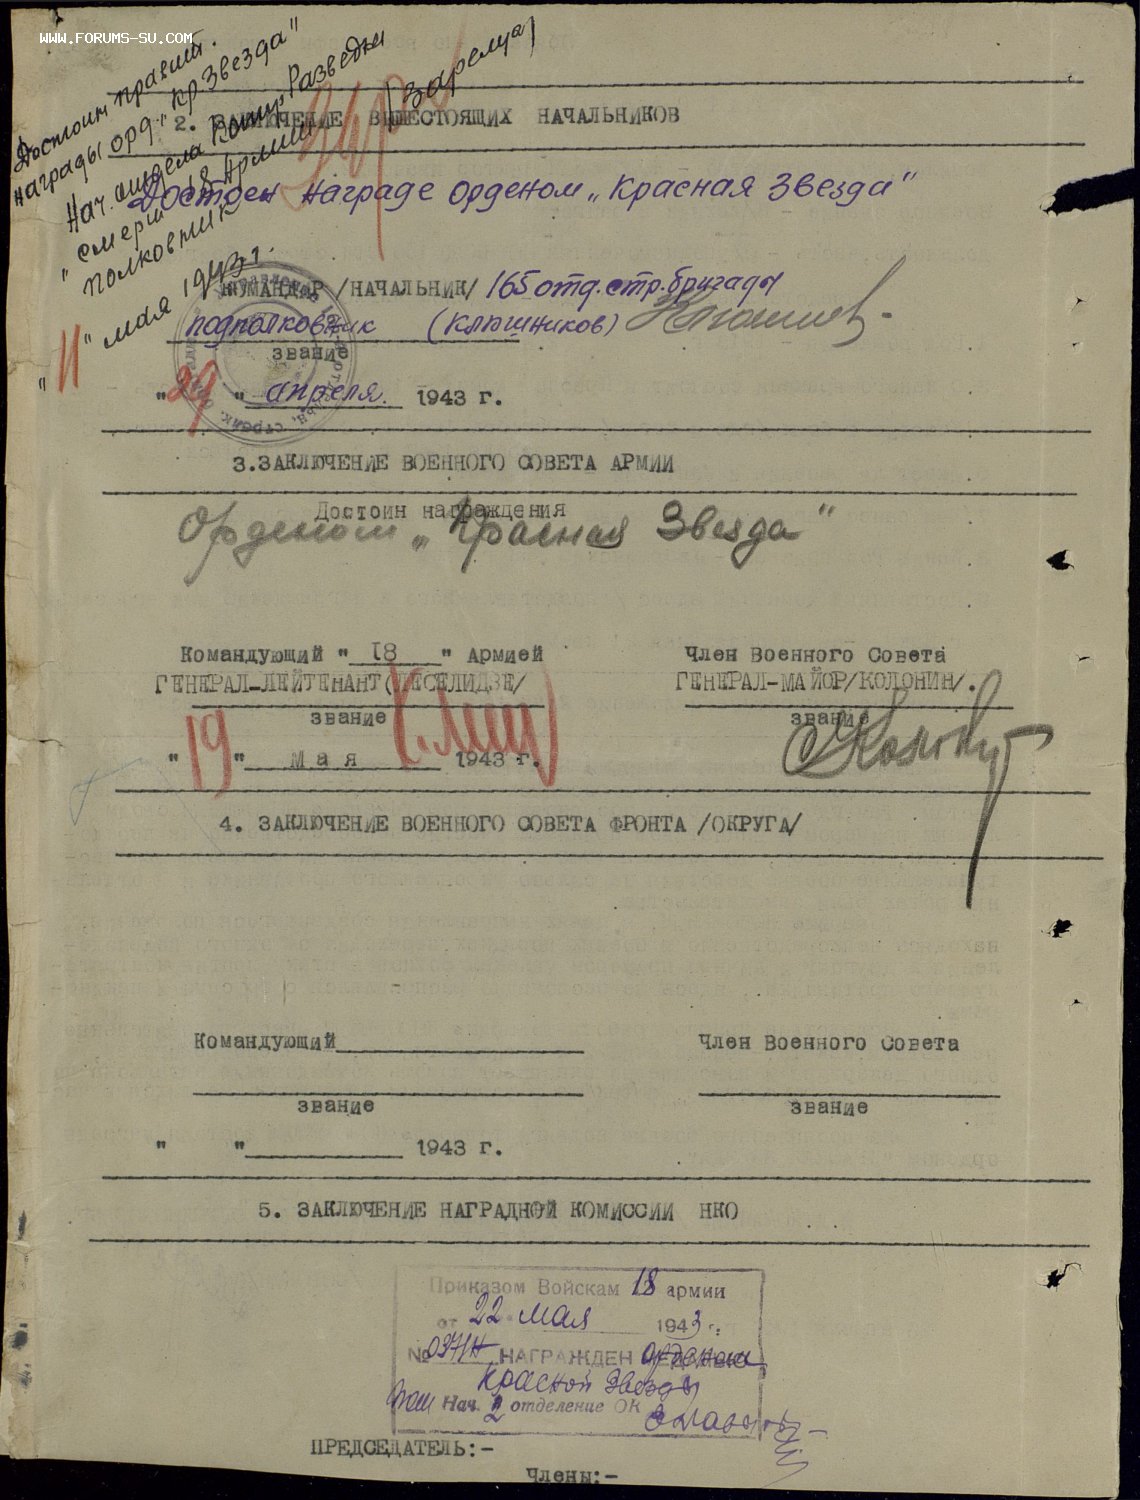 WWW.FORUMS-SU.COM
Достоин правит.
награды орд. "кр Звезда"
Нач. отдела Контр Разведки
"Смерш" 18 Армии
полковник /Зарелуа/
"11" мая 1943 г.
2. ЗАКЛЮЧЕНИЕ ВЫШЕСТОЯЩИХ НАЧАЛЬНИКОВ
Достоен награде орденом „Красная Звезда"
КОМАНДИР /НАЧАЛЬНИК/ 165 отд. стр. бригады
подполковник (Клпшников)
звание
"29" апреля. 1943 г.
3.ЗАКЛЮЧЕНИЕ ВОЕННОГО СОВЕТА АРМИИ
Достоин награждения
Орденом „Красная Звезда"
Командующий "18" Армией Член Военного Совета
ГЕНЕРАЛ-ЛЕЙТЕНАНТ/ЛЕСЕЛИДЗЕ/ ГЕНЕРАЛ-МАЙОР/КОЛОНИН/.
звание звание
"19" Мая 1943 г.
4. ЗАКЛЮЧЕНИЕ ВОЕННОГО СОВЕТА ФРОНТА /ОКРУГА/
Командующий Член Военного Совета
звание звание
" " 1943 г.
5. ЗАКЛЮЧЕНИЕ НАГРАДНОЙ КОМИССИИ НКО
Приказом Войскам 18 армии
от 22 мая 1943 г.
№ 037/Н НАГРАЖДЕН орденом
Красной Звезды
Пом Нач. 2 отделение ОК
ПРЕДСЕДАТЕЛЬ:-
Члены:-